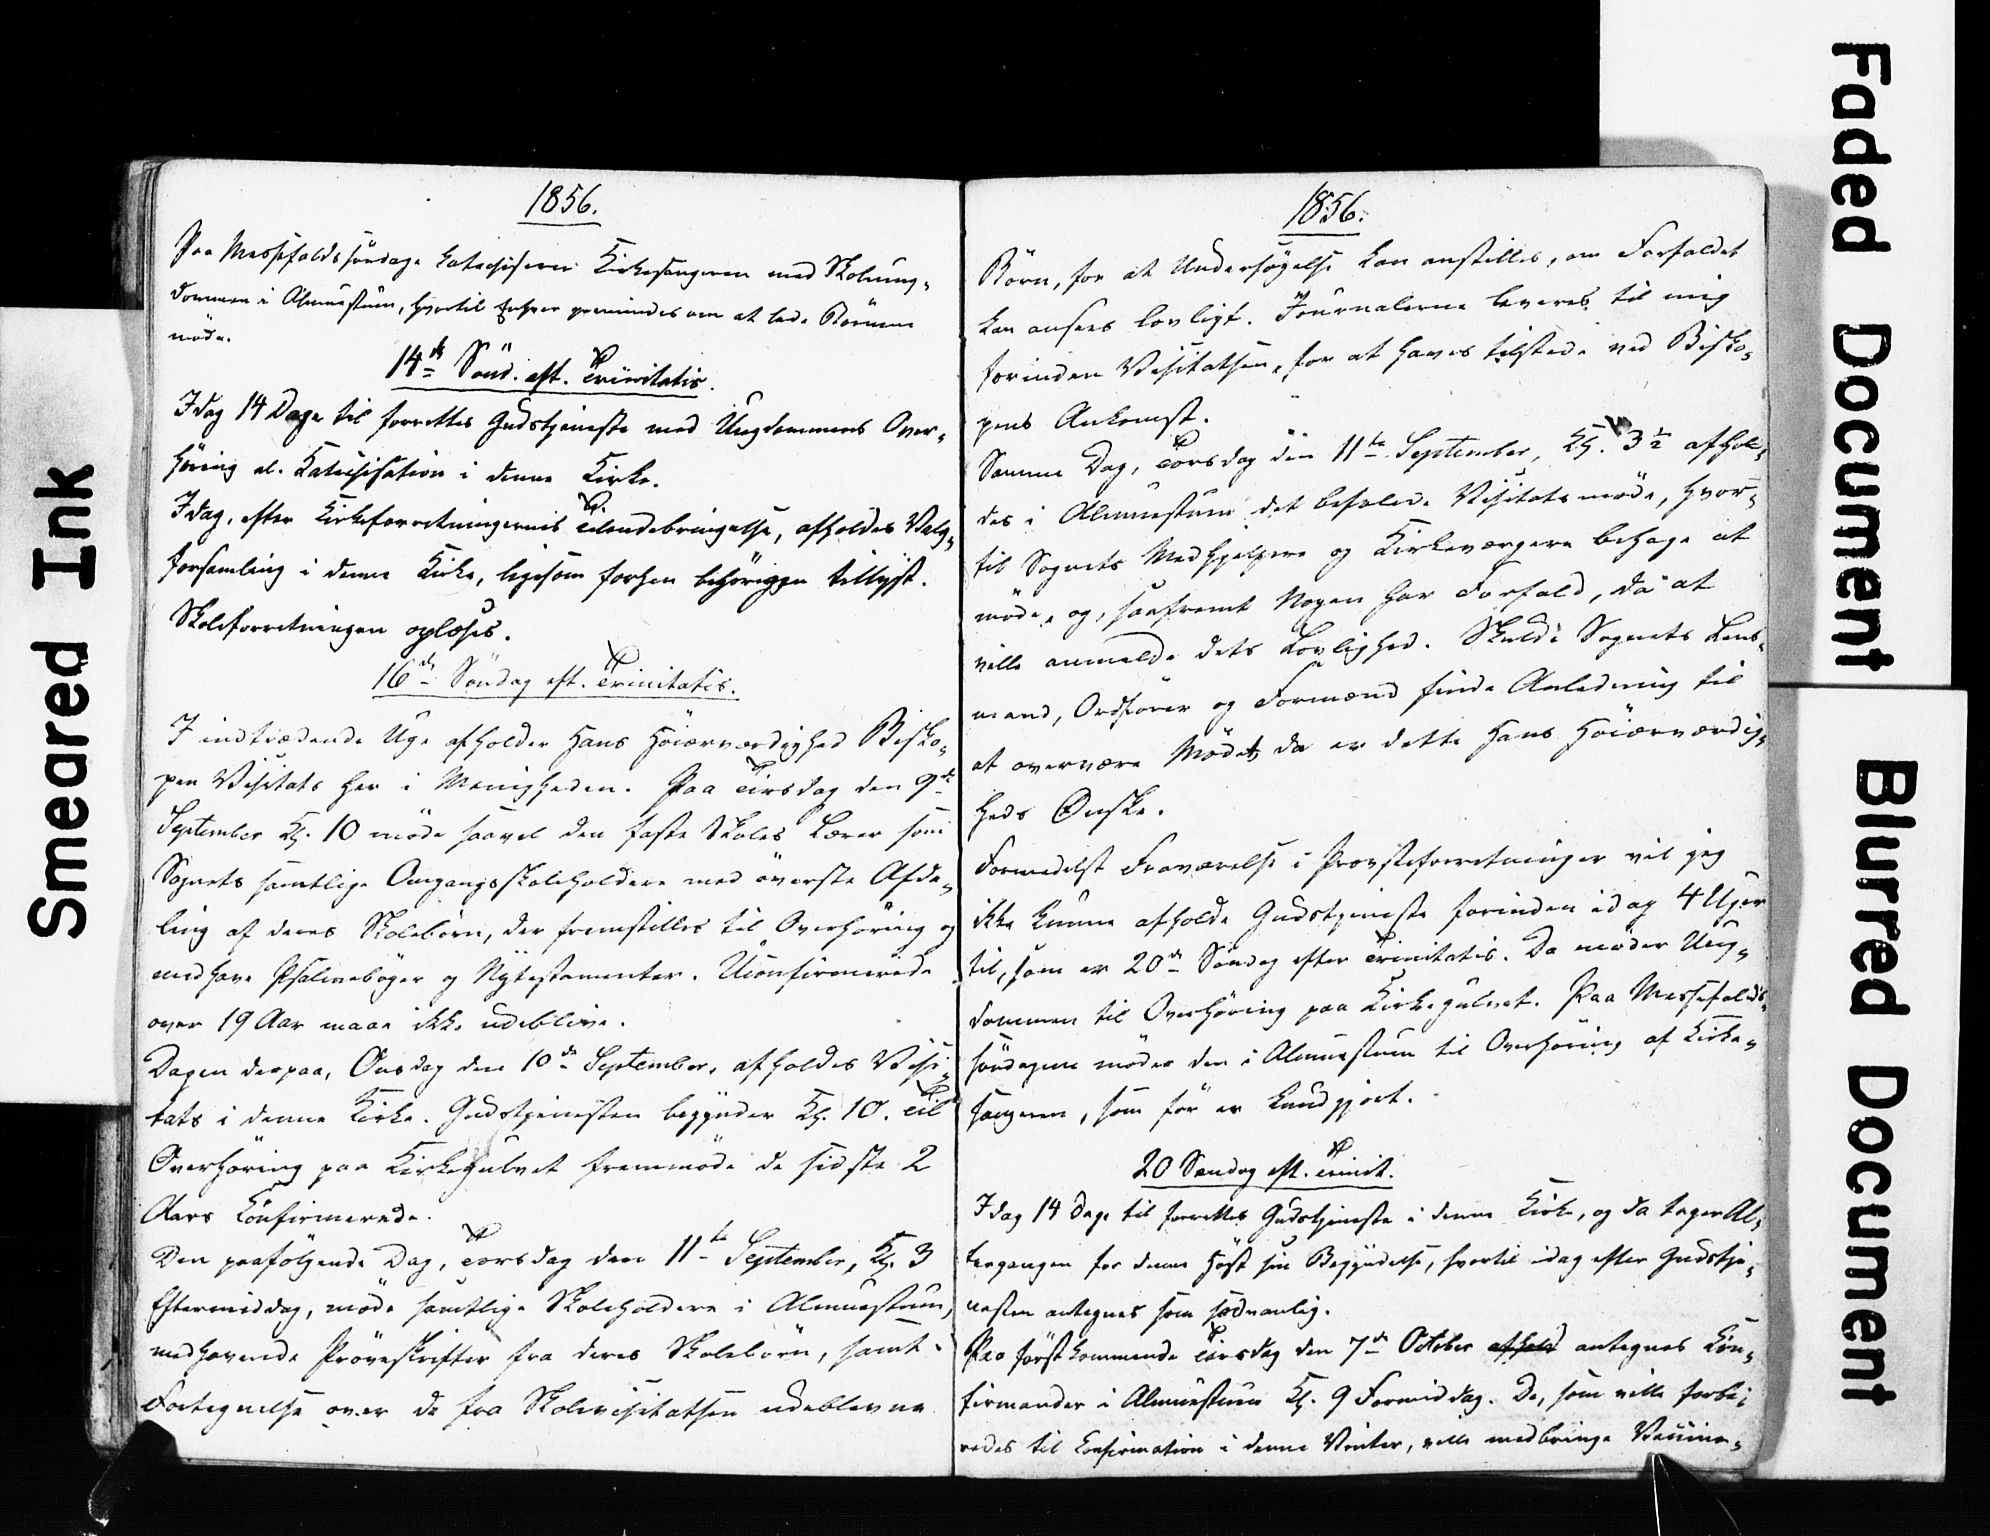 1856.
Paa Messefaldssöndage katechiserer Kirkesangeren med Skoleung-
dommen i Almuestuen, hvortil Enhver paamindes om at lade Börnene
möde.
14de Sönd. eft. Trinitatis.
Idag 14 Dage til forrettes Gudstjeneste med Ungdommens Over-
höring el. Katechisation i denne Kirke.
Idag, efter Kirkeforretningernes Tilendebringelse, afholdes Valg-
forsamling i denne Kirke, ligesom forhen behörigen tillyst.
Skoleforretningen oplæses.
16de Söndag eft. Trinitatis.
I indtrædende Uge afholder Hans Höiærværdighed Bisko-
pen Visitats her i Menigheden. Paa Tirsdag den 9de
September Kl. 10 möde saavel den faste Skoles Lærer som
Sognets samtlige Omgangsskoleholdere med överste Afde-
ling af deres Skolebörn, der fremstilles til Overhöring og
medhave Psalmeböger og Nytestamenter. Uconfirmerede
over 19 Aar maae ikke udeblive.
Dagen derpaa, Onsdag den 10de September, afholdes Visi-
tats i denne Kirke. Gudstjenesten begynder Kl. 10. Til
Overhöring paa Kirkegulvet fremmöde de sidste 2
Aars Confirmerede.
Den paafölgende Dag, Torsdag den 11te September, Kl. 3
Eftermiddag, möde samtlige Skoleholdere i Almuestuen,
medhavende Pröveskrifter fra deres Skolebörn, samt
Fortegnelse over de fra Skolevisitatsen udeblevne
1856.
Börn, for at Undersögelse kan anstilles, om Forfaldet
kan ansees lovligt. Journalerne leveres til mig
forinden Visitatsen, for at haves tilstede ved Bisko-
pens Ankomst.
Samme Dag, Torsdag den 11te September, Kl. 3½ afhol-
des i Almuestuen det befalede Visitatsmöde, hvor-
til Sognets Medhjelpere og Kirkeværgere behage at
möde, og, saafremt Nogen har Forfald, da at
ville anmelde dets Lovlighed. Skulde Sognets Lens-
mand, Ordförer og Formænd finde Anledning til
at overvære Mödet, da er dette Hans Höiærværdig-
heds Ønske.
Formedelst Fraværelse i Provsteforretninger vil jeg
ikke kunne afholde Gudstjeneste forinden idag 4 Uger
til, som er 20de Söndag efter Trinitatis. Da möder Ung-
dommen til Overhöring paa Kirkegulvet. Paa Messefalds-
söndagene möder den i Almuestuen til Overhöring af Kirke-
sangeren, som för er kundgjort.
20 Söndag eft. Trinit.
Idag 14 Dage til forrettes Gudstjeneste i denne Kirke, og da tager Al-
tergangen for denne Höst sin Begyndelse, hvortil idag efter Gudstje-
nesten antegnes som sædvanlig.
Paa förstkommende Tirsdag den 7de October afhold antegnes Con-
firmander i Almuestuen Kl. 9 Formiddag. De, som ville forbe-
redes til Confirmation i denne Vinter, ville medbringe Vaccina-
Smeared Ink
Faded Document
Blurred Document